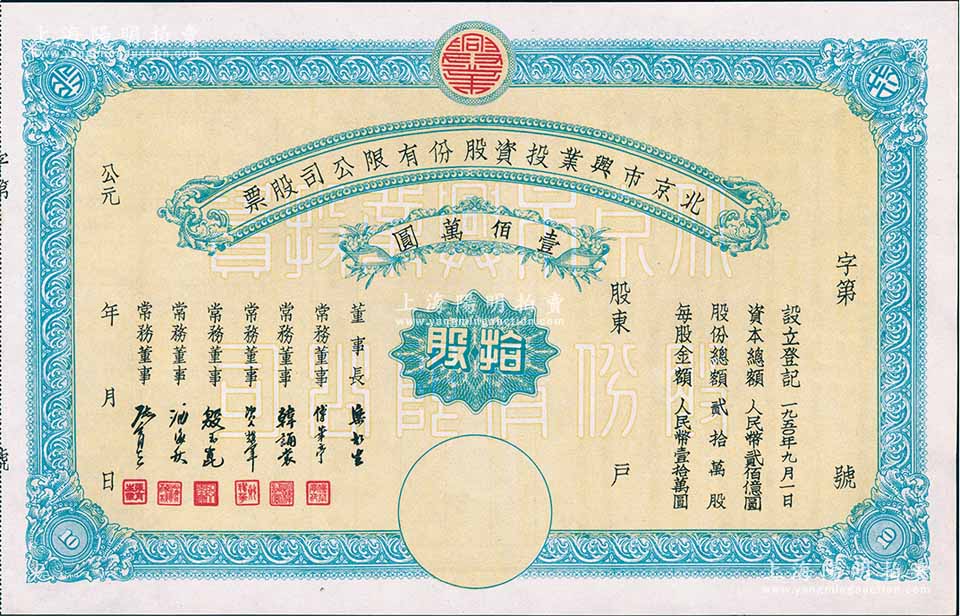 上海陽明拍賣
www.yangmingauction.com
北京市興業投資股份有限公司股票
壹佰萬圓
字第 號
設立登記 一九五〇年九月一日
資本總額 人民幣貳佰億圓
股份總額 貳拾萬股
每股金額 人民幣壹拾萬圓
股東 戶
拾股
董事長
常務董事
常務董事
常務董事
常務董事
常務董事
常務董事
公元 年 月 日
字第 號
北京市興業投資
股份有限公司
上海陽明拍賣
www.yangmingauction.com
10
10
上海陽明拍賣
www.yangmingauction.com